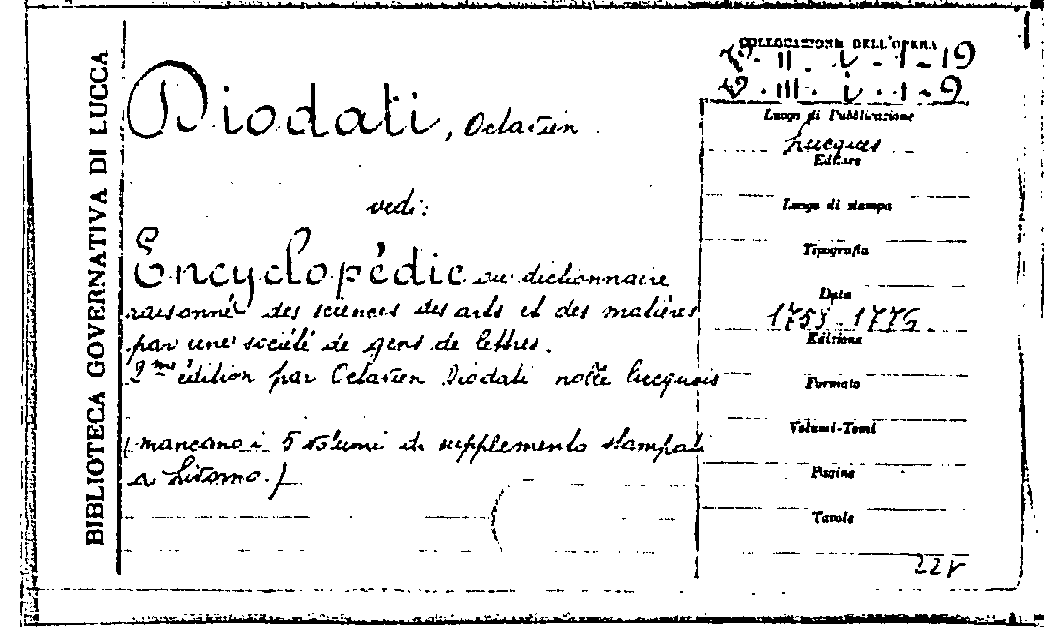 BIBLIOTECA GOVERNATIVA DI LUCCA
Diodati, Octavien
vedi:
Encyclopédie ou dictionnaire
raisonné des sciences des arts et des matières
par une société de gens de lettres.
2me édition par Octavien Diodati noble lucquois
(mancano i 5 volumi di supplemento stampati
a Livorno.)
COLLOCAZIONE DELL'OPERA
II. V-1-19
III. V-1-9
Luogo di Pubblicazione
Lucques
Editore
Luogo di stampa
Tipografia
Data
1758-1776
Edizione
Formato
Volumi-Tomi
Pagine
Tavole